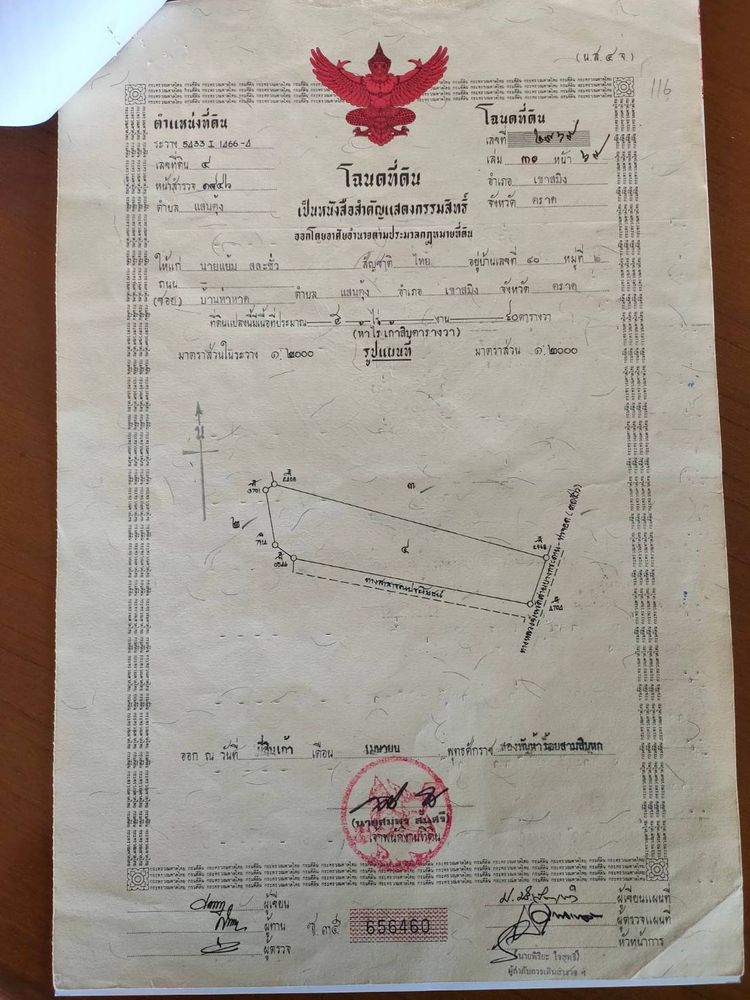 (น.ส.๔จ.)
116
ตำแหน่งที่ดิน
ระวาง 5433 I 1466-4
เลขที่ดิน ๔
หน้าสำรวจ ๑๙๔๖
ตำบล แสนตุ้ง
โฉนดที่ดิน
เลขที่ ๒๙๖๙
เล่ม ๓๐ หน้า ๖๙
อำเภอ เขาสมิง
จังหวัด ตราด
โฉนดที่ดิน
เป็นหนังสือสำคัญแสดงกรรมสิทธิ์
ออกโดยอาศัยอำนาจตามประมวลกฎหมายที่ดิน
ให้แก่ นายแย้ม สละชั่ว สัญชาติ ไทย อยู่บ้านเลขที่ ๔๐ หมู่ที่ ๒
ถนน
(ซอย) บ้านท่าหาด ตำบล แสนตุ้ง อำเภอ เขาสมิง จังหวัด ตราด
ที่ดินแปลงนี้มีเนื้อที่ประมาณ ๕ ไร่ - งาน ๙๐ ตารางวา
(ห้าไร่เก้าสิบตารางวา)
มาตราส่วนในระวาง ๑:๒๐๐๐ รูปแผนที่ มาตราส่วน ๑:๒๐๐๐
น
๓
๒
๔
ทางสาธารณประโยชน์
ออก ณ วันที่ ยี่สิบเก้า เดือน เมษายน พุทธศักราช สองพันห้าร้อยสามสิบหก
เจ้าพนักงานที่ดิน
ผู้เขียน
ผู้ทาน
ผู้ตรวจ
ช.๓๕ 656460
ผู้เขียนแผนที่
ผู้ตรวจแผนที่
หัวหน้าการ
(นายพิริยะ ใจสุทธิ์)